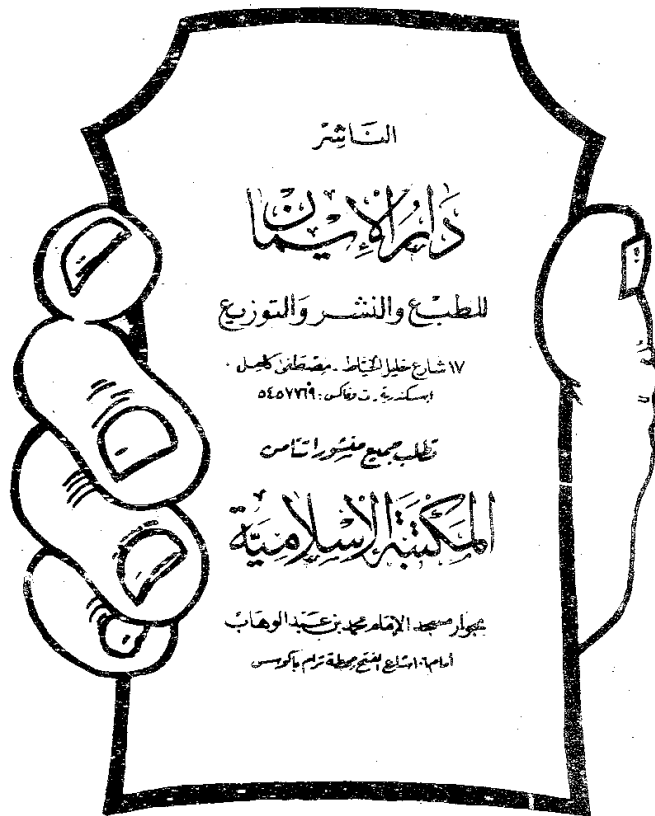 الناشر
دار الإيمان
للطبع والنشر والتوزيع
١٧ شارع خليل الخياط - مصطفى كامل
إسكندرية - ت وفاكس: ٥٤٥٧٧٦٩
تطلب جميع منشوراتنا من
المكتبة الإسلامية
بجوار مسجد الإمام محمد بن عبد الوهاب
أمام شارع الفتح محطة ترام باكوس